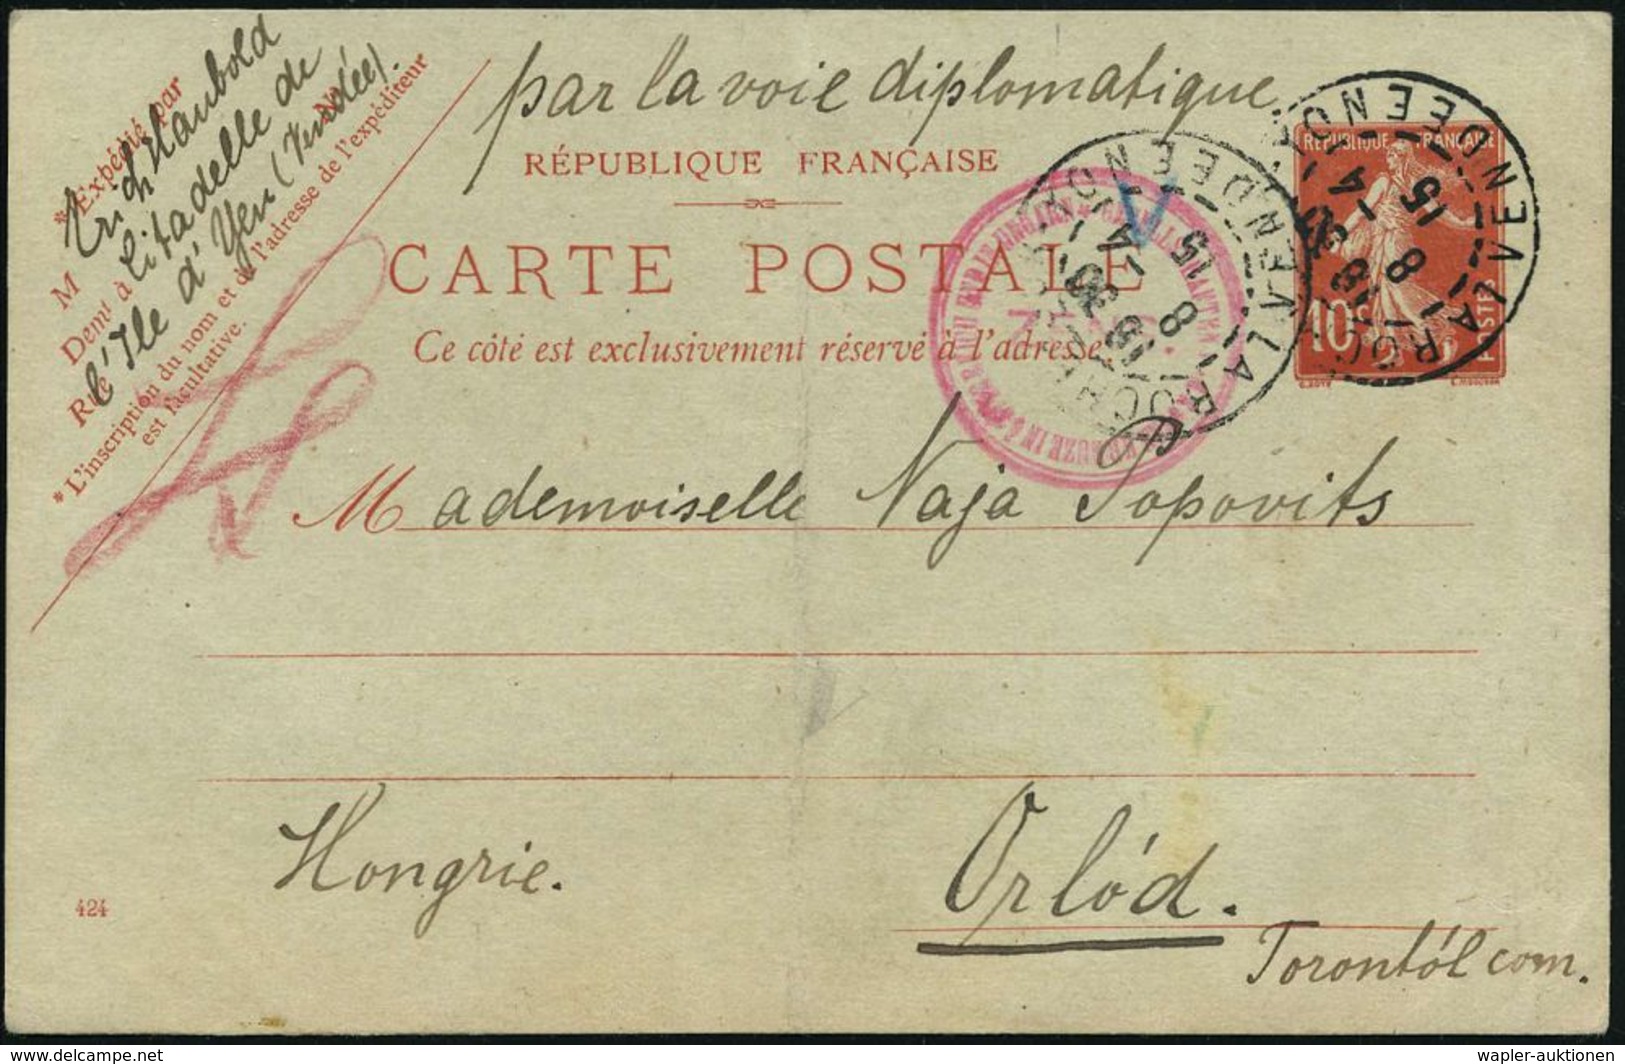 par la voie diplomatique
RÉPUBLIQUE FRANÇAISE
CARTE POSTALE
Ce côté est exclusivement réservé à l'adresse
*Expédié par
M Erich Haubold
Demt à Citadelle de
Rue N°
l'Ile d'Yeu (Vendée).
*L'inscription du nom et de l'adresse de l'expéditeur
est facultative.
RÉPUBLIQUE FRANÇAISE
10
POSTES
LA ROCHE
VENDEE
14 15
18 30
8
LA ROCHE
VENDEE
14 15
18 30
8
Mademoiselle Naja Popovits
Hongrie.
Orlód.
Torontól com.
424
wapler-auktionen